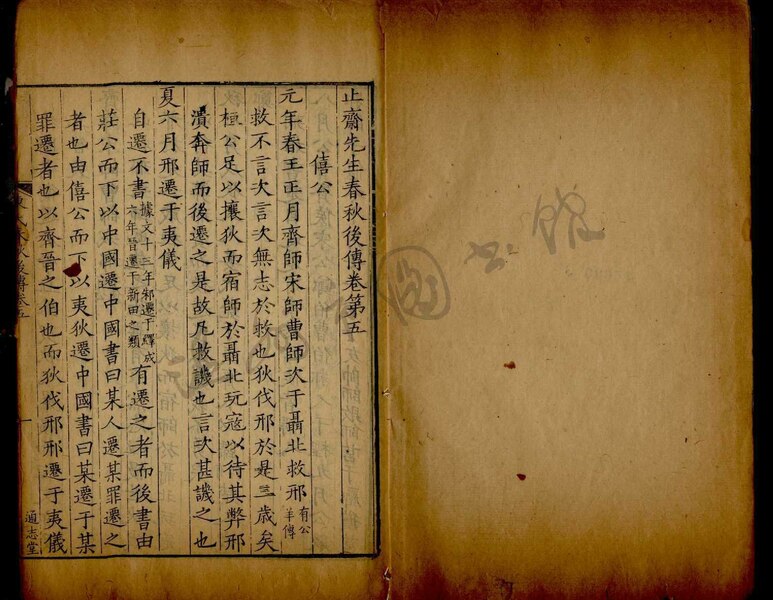 止齋先生春秋後傳卷第五
僖公
元年春王正月齊師宋師曹師次于聶北救邢有公羊傳
救不言次言次無志於救也狄伐邢於是三歲矣
桓公足以攘狄而宿師於聶北玩寇以待其弊邢
潰奔師而後遷之是故凡救譏也言次甚譏之也
夏六月邢遷于夷儀
自遷不書據文十三年邾遷于繹成六年晉遷于新田之類有遷之者而後書由
莊公而下以中國遷中國書曰某人遷某罪遷之
者也由僖公而下以夷狄遷中國書曰某遷于某
罪遷者也以齊晉之伯也而狄伐邢邢遷于夷儀
通志堂